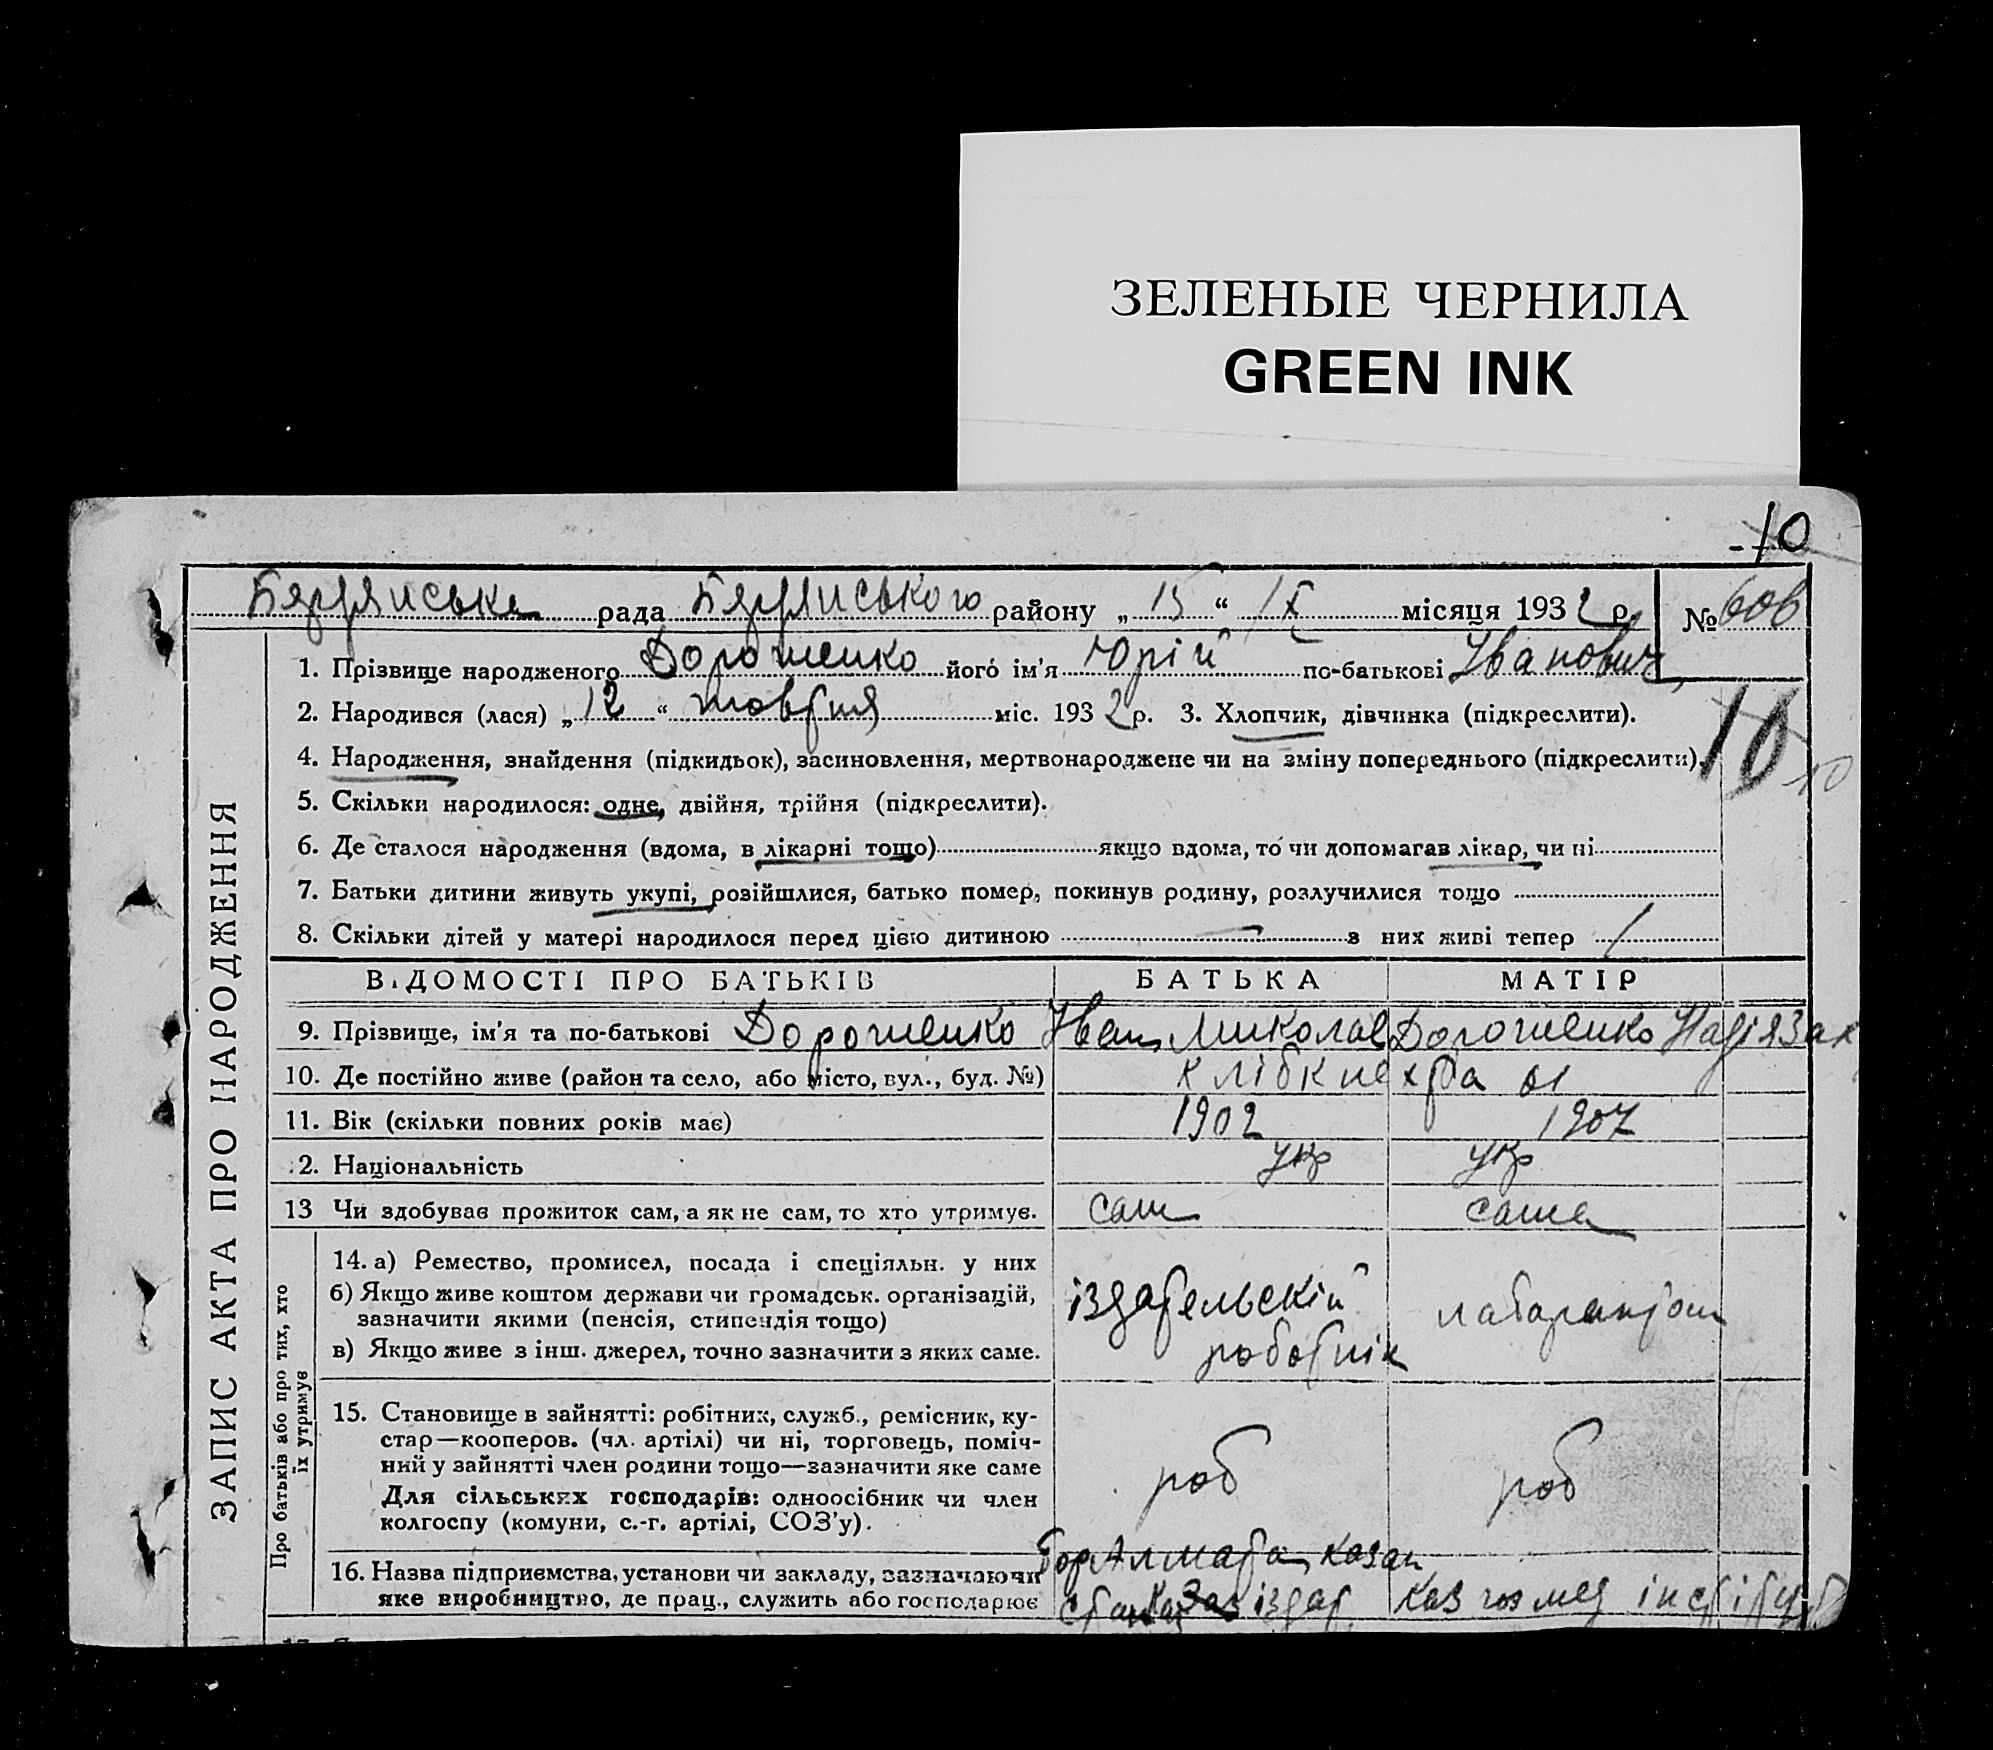 ЗЕЛЕНЫЕ ЧЕРНИЛА
GREEN INK
10
Бердянська рада Бердянського району „ 15 “ IX місяця 1932 р. № 606
1. Прізвище народженого Дорошенко його ім'я Юрій по-батькові Іванович
2. Народився (лася) „ 12 “ жовтня міс. 1932 р. 3. Хлопчик, дівчинка (підкреслити).
10
4. Народження, знайдення (підкидьок), засиновлення, мертвонароджене чи на зміну попереднього (підкреслити).
10
5. Скільки народилося: одне, двійня, трійня (підкреслити).
6. Де сталося народження (вдома, в лікарні тощо) якщо вдома, то чи допомагав лікар, чи ні
7. Батьки дитини живуть укупі, розійшлися, батько помер, покинув родину, розлучилися тощо
8. Скільки дітей у матері народилося перед цією дитиною — з них живі тепер /
ВІДОМОСТІ ПРО БАТЬКІВ БАТЬКА МАТІР
9. Прізвище, ім'я та по-батькові Дорошенко Іван Миколає Дорошенко Надія Зах
10. Де постійно живе (район та село, або місто, вул., буд. №) К Лібкнехта 61
11. Вік (скільки повних років має) 1902 1907
2. Національність укр укр
13 Чи здобував прожиток сам, а як не сам, то хто утримує. сам сама
14. а) Ремество, промисел, посада і спеціяльн. у них
б) Якщо живе коштом держави чи громадськ. організацій,
зазначити якими (пенсія, стипендія тощо)
в) Якщо живе з інш. джерел, точно зазначити з яких саме.
іздательскій
роботнік
лаборантом
15. Становище в зайнятті: робітник, служб., ремісник, ку-
стар—кооперов. (чл. артілі) чи ні, торговець, поміч-
ний у зайнятті член родини тощо—зазначити яке саме
Для сільських господарів: одноосібник чи член
колгоспу (комуни, с.-г. артілі, СОЗ'у).
роб роб
16. Назва підприємства, установи чи закладу, зазначаючи
яке виробництво, де прац., служить або господарює
гор Алмата Казан
іздат Каз гос мед інстітут
ЗАПИС АКТА ПРО НАРОДЖЕННЯ
Про батьків або про тих, хто
їх утримує